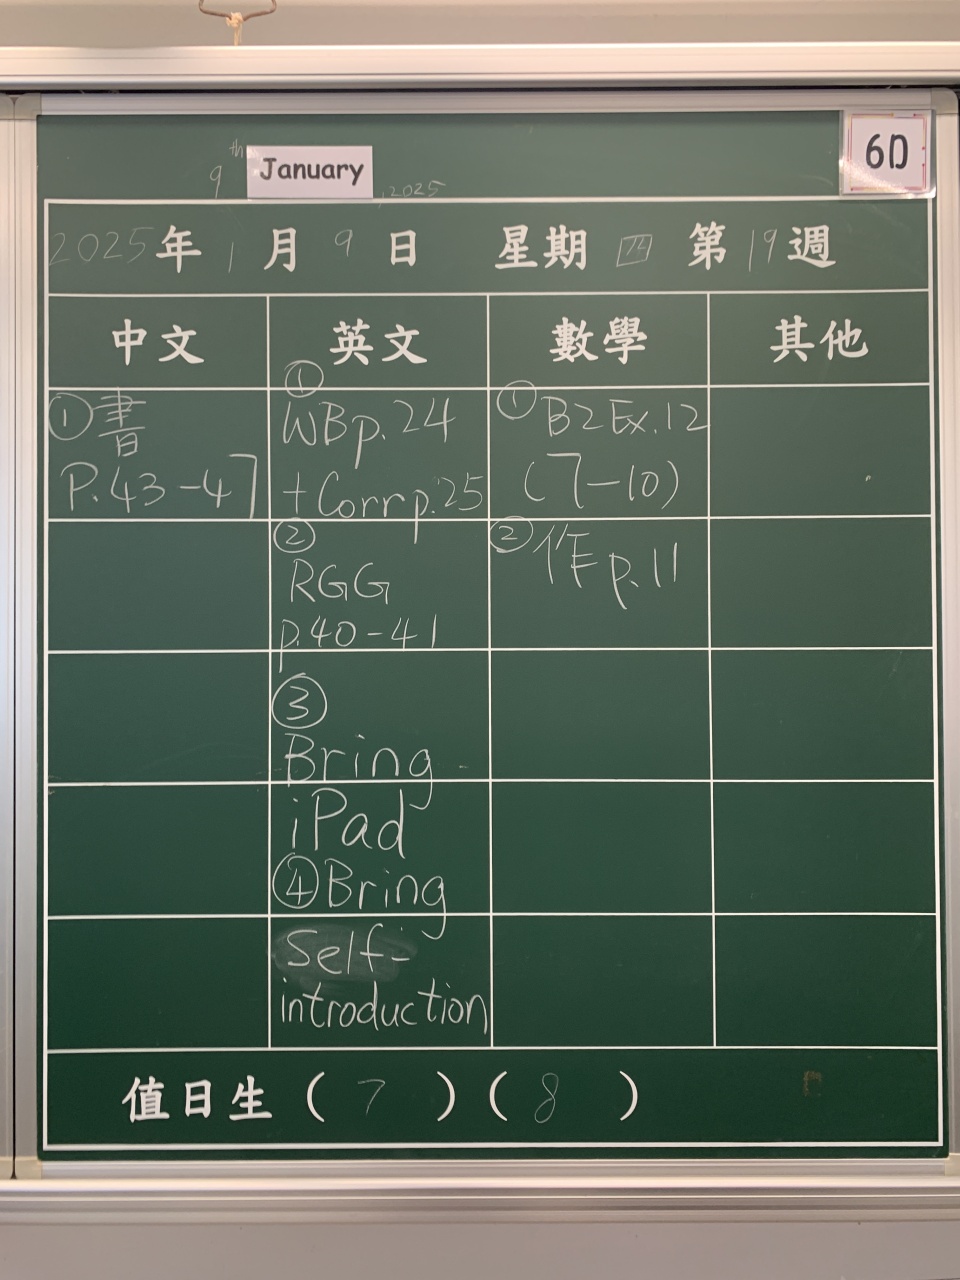 9th January, 2025
6D
2025年1月9日 星期四 第19週
中文 英文 數學 其他
①書
P.43-47
①
WBp.24
+Corrp.25
②
RGG
p.40-41
③
Bring
iPad
④Bring
Self-
introduction
①B2Ex.12
(7-10)
②作p.11
值日生(7)(8)